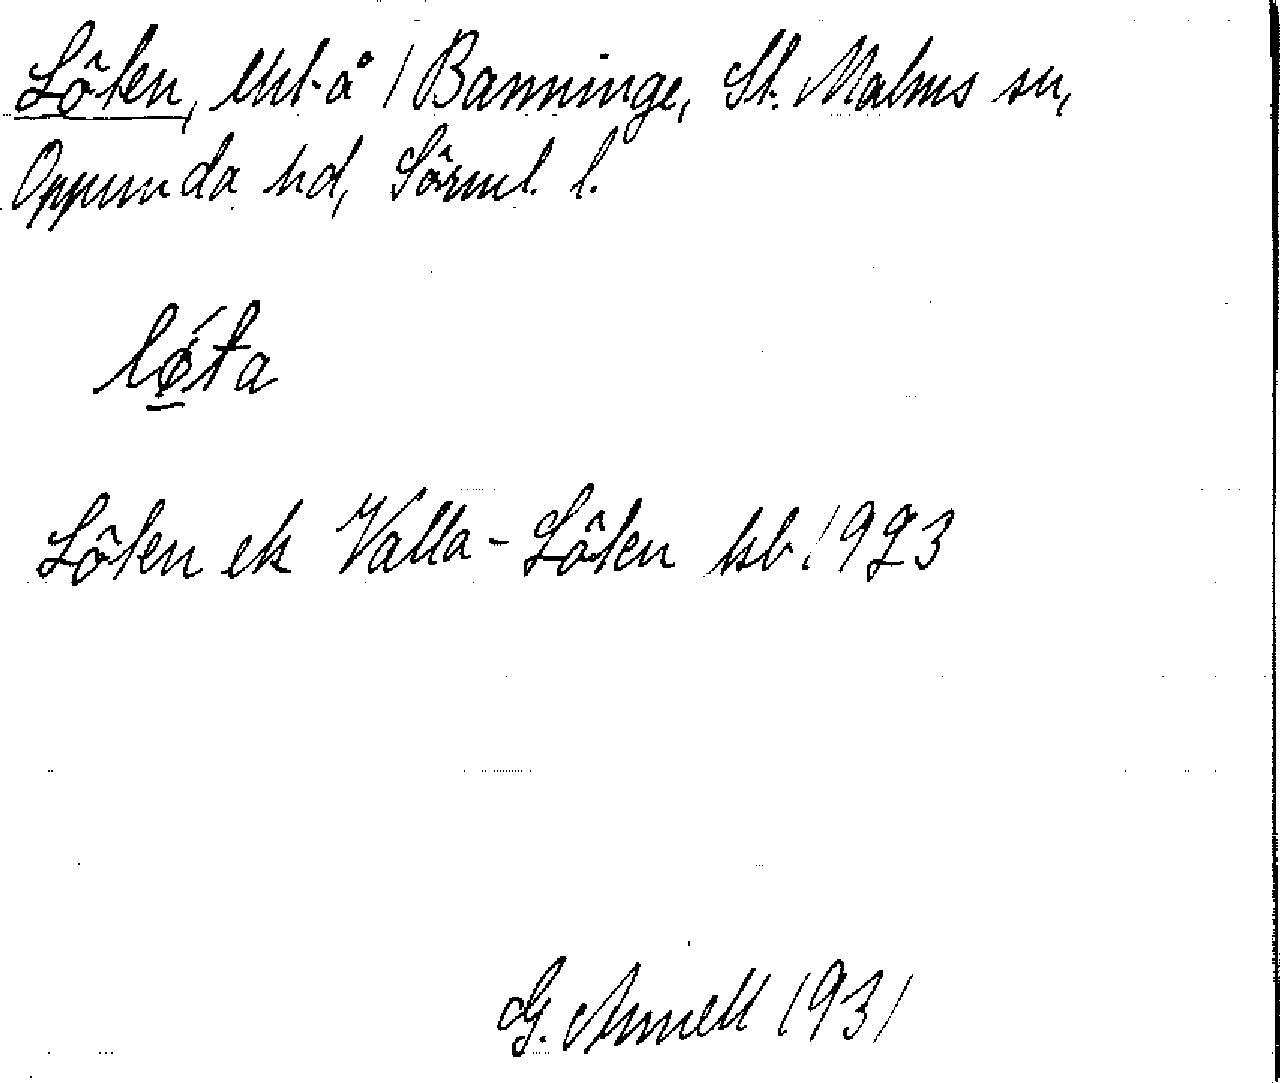 Löten, utj. å 1 Banninge, St. Malms sn,
Oppunda hd, Sörml. l.
lǿ̱ta
Löten ek Valla - Löten hsb. 1923
G. Arnell 1931